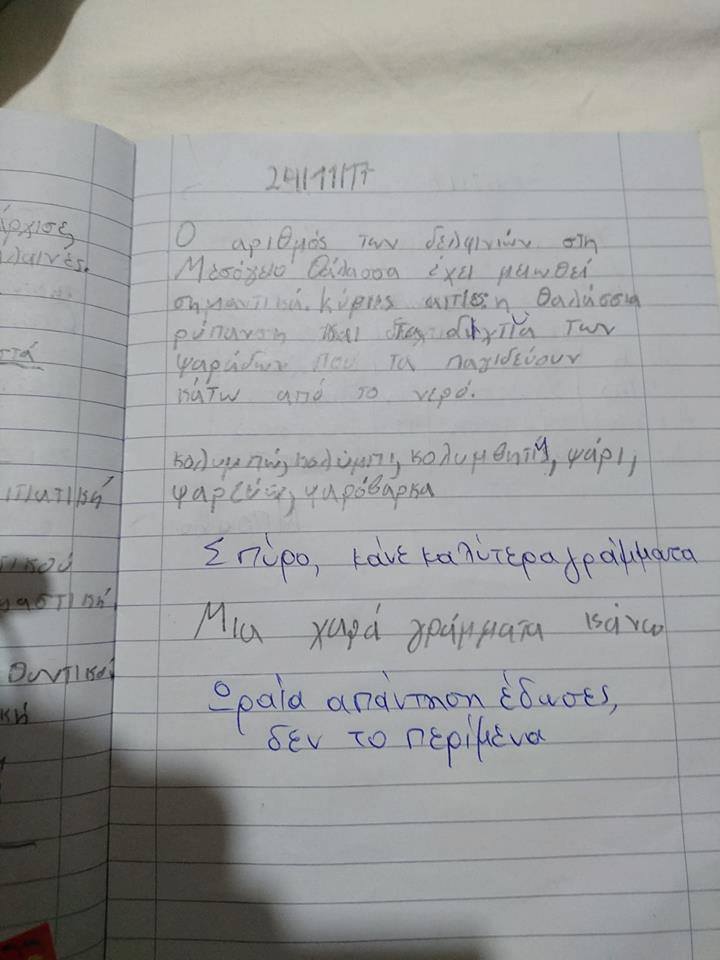 άρχισε,
λαινές.
στά
ιτιατική
τικού
μαστική
θυντικού
κή
24/11/17
Ο αριθμός των δελφινιών στη
Μεσόγειο θάλασσα έχει μειωθεί
σημαντικά. Κύριες αιτίες: η θαλάσσια
ρύπανση και τα δίχτυα των
ψαράδων που τα παγιδεύουν
κάτω από το νερό.
κολυμπώ, κολύμπι, κολυμβητής, ψάρι,
ψαρεύω, ψαρόβαρκα
Σπύρο, κάνε καλύτερα γράμματα
Μια χαρά γράμματα κάνω
Ωραία απάντηση έδωσες,
δεν το περίμενα